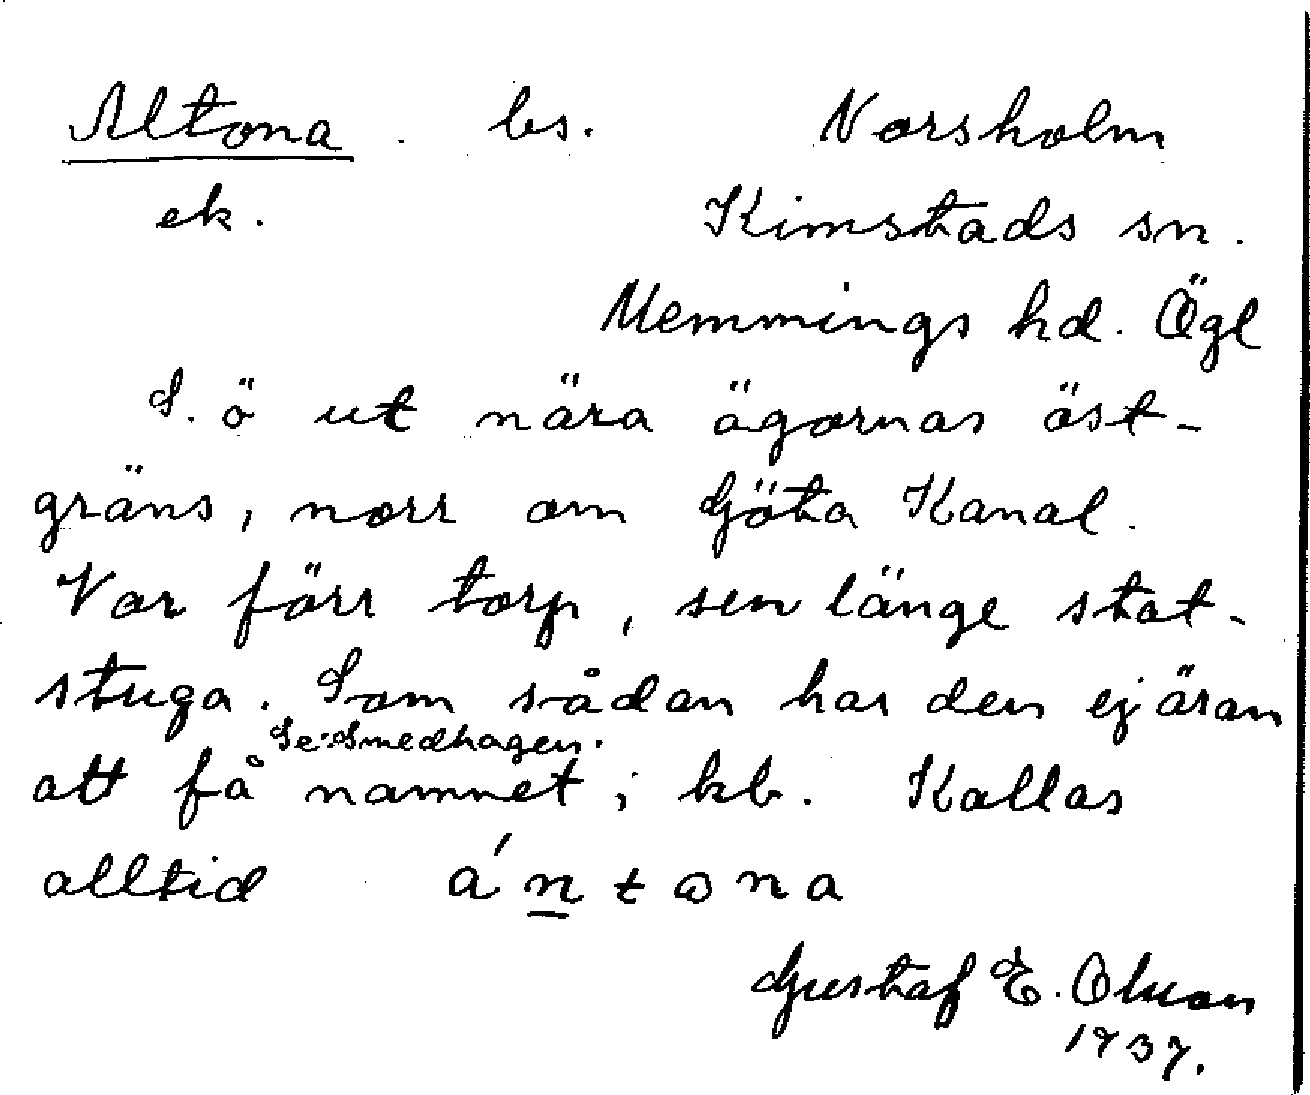 Altona . bs. Norsholm
ek. Kimstads sn.
Memmings hd. Ögl
S. ö ut nära ägornas öst-
gräns, norr om Göta Kanal.
Var förr torp, sen länge stat-
stuga. Som sådan har den ej äran
Se: Smedhagen.
att få namnet i kb. Kallas
alltid ántona
Gustaf E. Olsson
1937.